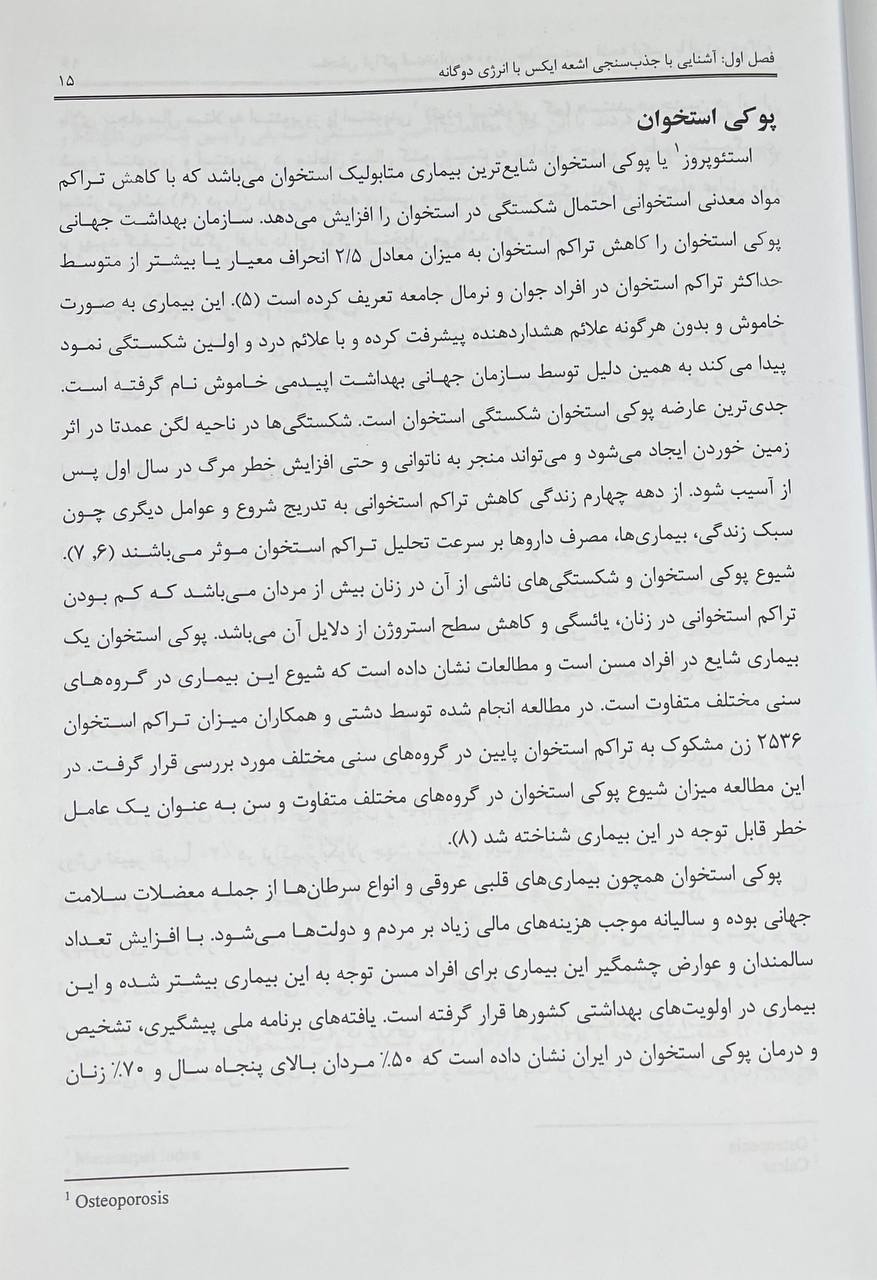 فصل اول: آشنایی با جذب‌سنجی اشعه ایکس با انرژی دوگانه ۱۵
پوکی استخوان
استئوپروز¹ یا پوکی استخوان شایع‌ترین بیماری متابولیک استخوان می‌باشد که با کاهش تراکم
مواد معدنی استخوانی احتمال شکستگی در استخوان را افزایش می‌دهد. سازمان بهداشت جهانی
پوکی استخوان را کاهش تراکم استخوان به میزان معادل ۲/۵ انحراف معیار یا بیشتر از متوسط
حداکثر تراکم استخوان در افراد جوان و نرمال جامعه تعریف کرده است (۵). این بیماری به صورت
خاموش و بدون هرگونه علائم هشداردهنده پیشرفت کرده و با علائم درد و اولین شکستگی نمود
پیدا می کند به همین دلیل توسط سازمان جهانی بهداشت اپیدمی خاموش نام گرفته است.
جدی‌ترین عارضه پوکی استخوان شکستگی استخوان است. شکستگی‌ها در ناحیه لگن عمدتا در اثر
زمین خوردن ایجاد می‌شود و می‌تواند منجر به ناتوانی و حتی افزایش خطر مرگ در سال اول پس
از آسیب شود. از دهه چهارم زندگی کاهش تراکم استخوانی به تدریج شروع و عوامل دیگری چون
سبک زندگی، بیماری‌ها، مصرف داروها بر سرعت تحلیل تراکم استخوان موثر می‌باشند (۶, ۷).
شیوع پوکی استخوان و شکستگی‌های ناشی از آن در زنان بیش از مردان می‌باشد که کم بودن
تراکم استخوانی در زنان، یائسگی و کاهش سطح استروژن از دلایل آن می‌باشد. پوکی استخوان یک
بیماری شایع در افراد مسن است و مطالعات نشان داده است که شیوع این بیماری در گروه‌های
سنی مختلف متفاوت است. در مطالعه انجام شده توسط دشتی و همکاران میزان تراکم استخوان
۲۵۳۶ زن مشکوک به تراکم استخوان پایین در گروه‌های سنی مختلف مورد بررسی قرار گرفت. در
این مطالعه میزان شیوع پوکی استخوان در گروه‌های مختلف متفاوت و سن به عنوان یک عامل
خطر قابل توجه در این بیماری شناخته شد (۸).
پوکی استخوان همچون بیماری‌های قلبی عروقی و انواع سرطان‌ها از جمله معضلات سلامت
جهانی بوده و سالیانه موجب هزینه‌های مالی زیاد بر مردم و دولت‌ها می‌شود. با افزایش تعداد
سالمندان و عوارض چشمگیر این بیماری برای افراد مسن توجه به این بیماری بیشتر شده و این
بیماری در اولویت‌های بهداشتی کشورها قرار گرفته است. یافته‌های برنامه ملی پیشگیری، تشخیص
و درمان پوکی استخوان در ایران نشان داده است که ۵۰٪ مردان بالای پنجاه سال و ۷۰٪ زنان
¹ Osteoporosis